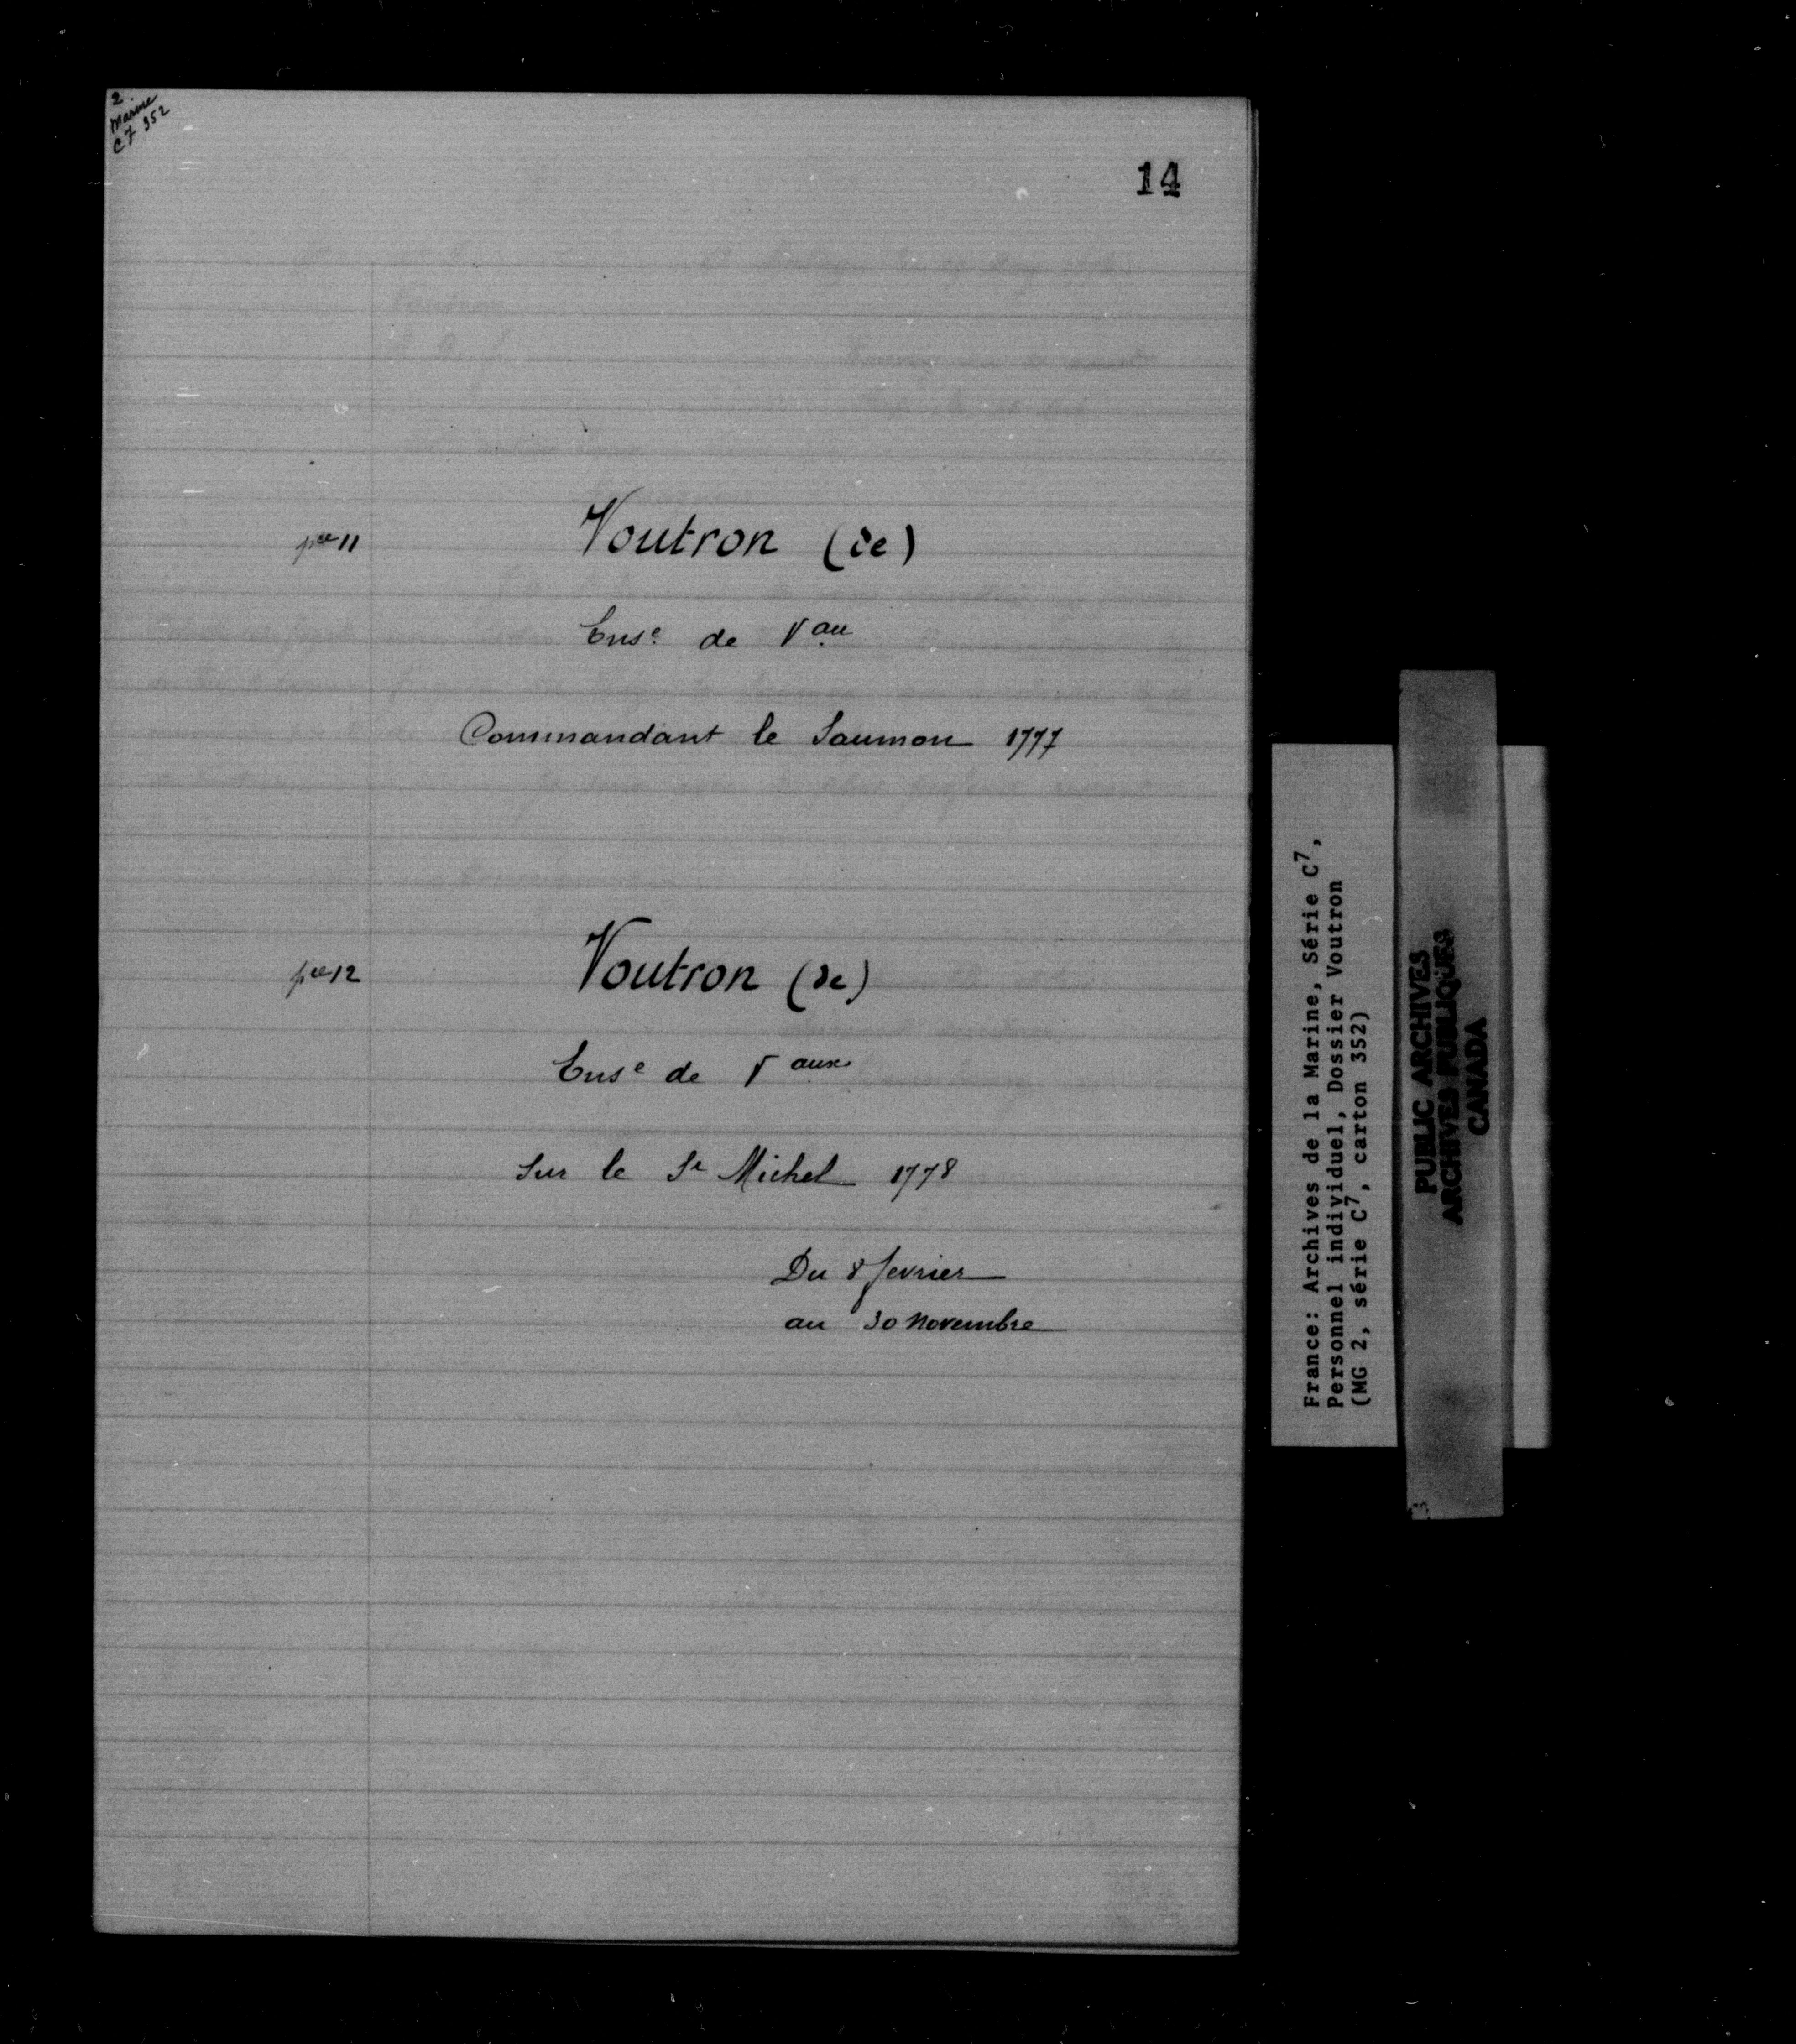 2
Marine
C7 352
14
pce 11
Voutron (de)
Ense. de Vau
Commandant le Saumon 1777
pce 12
Voutron (de)
Ense de Vaux
Sur le St Michel 1778
Du 8 fevrier
au 30 Novembre
France: Archives de la Marine, Série C7,
Personnel individuel, Dossier Voutron
(MG 2, série C7, carton 352)
PUBLIC ARCHIVES
ARCHIVES PUBLIQUES
CANADA